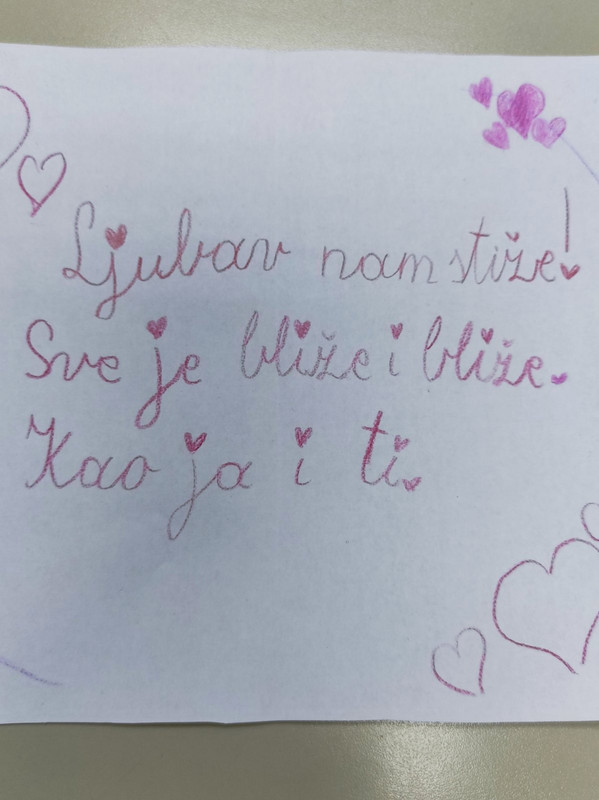 Ljubav nam stiže!
Sve je bliže i bliže.
Kao ja i ti.